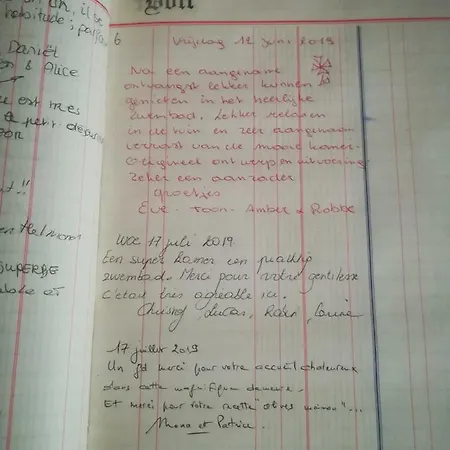 habitude;
Daniël
& Alice
est très
petit-déjeuner
t!!
en Helmond
SUPERBE
6
Vrijdag 12 juni 2019
Na een aangename
ontvangst lekker kunnen
genieten in het heerlijke
zwembad. Lekker relaxen
in de tuin en zeer aangenaam
verrast van de mooie kamer
origineel ontwerp en uitvoering
Zeker een aanrader
groetjes
Eve - Toon - Amber & Robbe
Woe 17 juli 2019
Een super kamer een prachtig
zwembad. Merci pour votre gentillesse
C'était très agréable ici.
Lucas, Robin,
17 juillet 2019
Un gd merci pour votre accueil chaleureux
dans cette magnifique demeure.
Et merci pour votre recette "stres maison"...
Mona et Patrice.